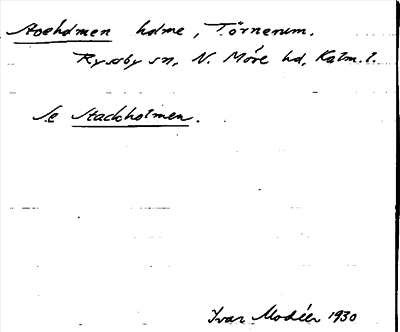 holme, Törnerum.
Ryssby sn, N. Möre hd, Kalm. l.
Se Stackholmen.
Ivar Modéer 1930